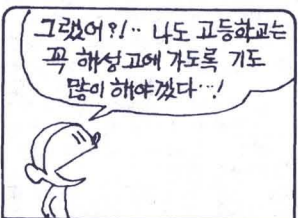 그랬어?!.. 나도 고등학교는
꼭 해성고에 가도록 기도
많이 해야겠다...!